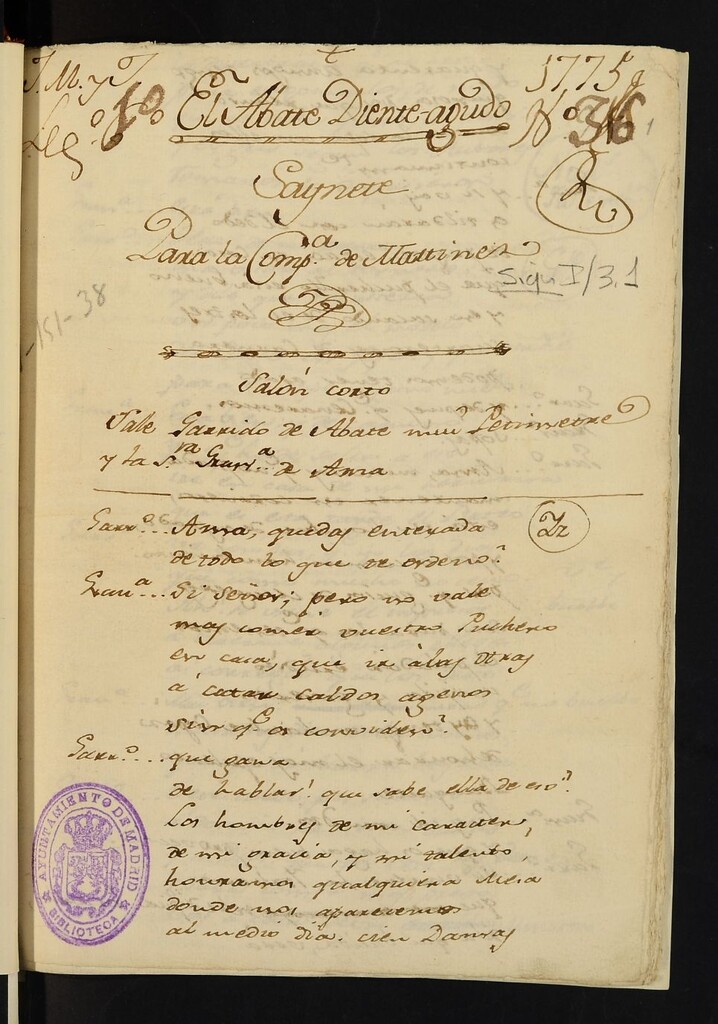 J. M. y J.
1775
Leg.º 1º
El Abate Diente-agudo
Nº 36
Saynete
Para la Comp.ª de Martinez
Sign I/3.1
151-38
Salón corto
Sale Garrido de Abate mui Petimetre
y la S.ra Gran.ª de Ama
Garr.º... Ama, quedas enterada
de todo lo que te ordenó?
Gran.ª... Si Señor; pero no vale
mas comer vuestro Puchero
en casa, que ir â las otras
â catar caldos agenos
sin q.e os conviden?
Garr.º... que gana
de hablar! que sabe ella de eso?
Los hombres de mi caracter,
de mi gracia, y mi talento,
honrramos qualquiera Mesa
donde nos aparecemos
al medio dia. cien Damas
AYUNTAMIENTO DE MADRID
BIBLIOTECA